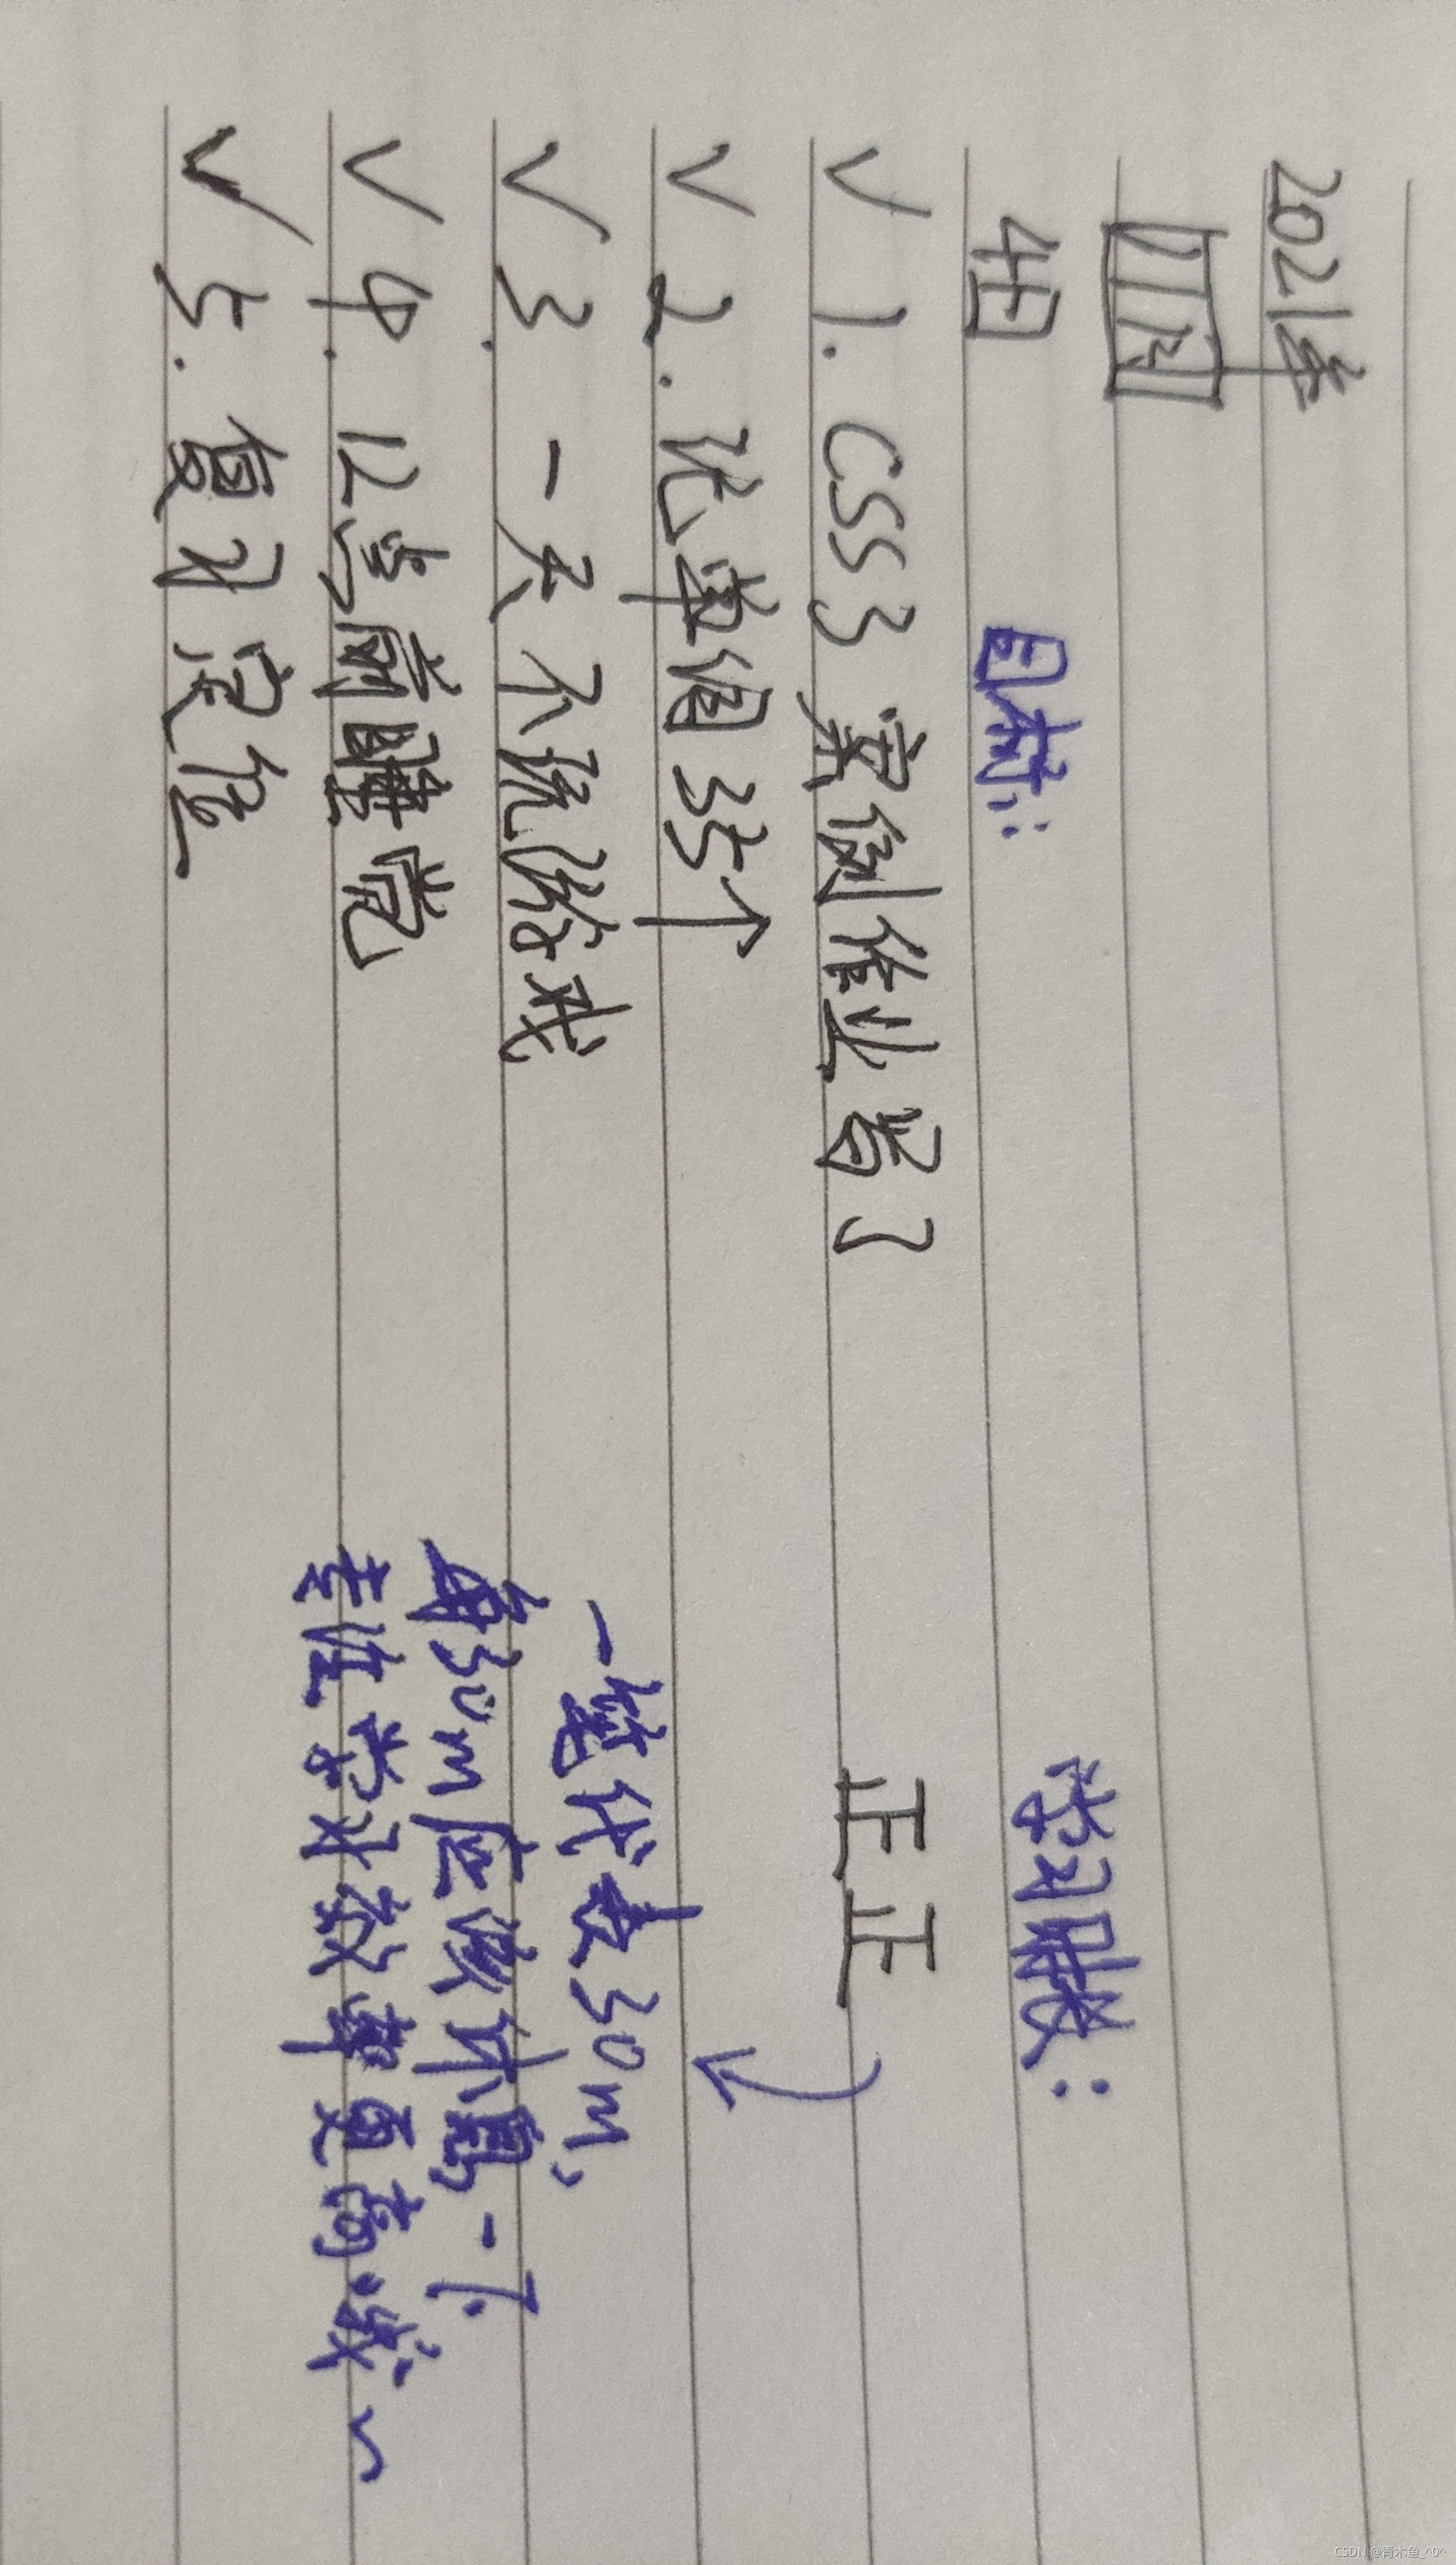 2021年
11月
4日
目标： 学习时长：
✓ 1. CSS3 案例作业写了 正正
✓ 2. 记单词35个
✓ 3. 一天不玩游戏
✓ 4. 12点前睡觉
✓ 5. 复习定位
一笔代表30m，
每30m应该休息一下
专注学习效率更高哦~
CSDN @青木鱼_^0^